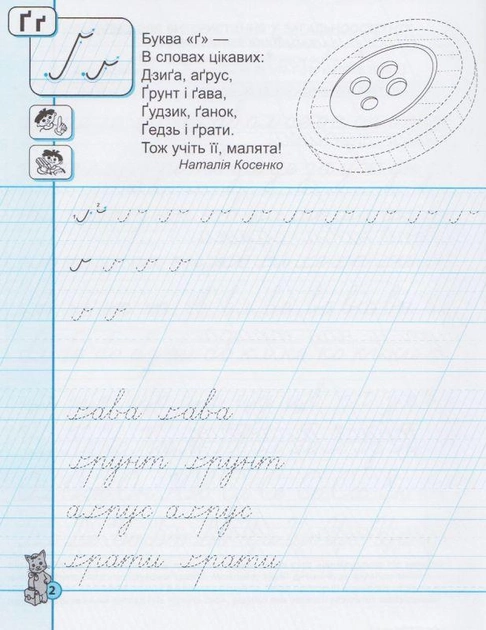 Ґ ґ
Ґ ґ
Буква «ґ» —
В словах цікавих:
Дзиґа, аґрус,
Ґрунт і ґава,
Ґудзик, ґанок,
Ґедзь і ґрати.
Тож учіть її, малята!
Наталія Косенко
ґ ґ ґ ґ ґ ґ ґ ґ ґ ґ
ґ ґ ґ ґ
ґ ґ
ґава ґава
ґрунт ґрунт
аґрус аґрус
ґрати ґрати
2